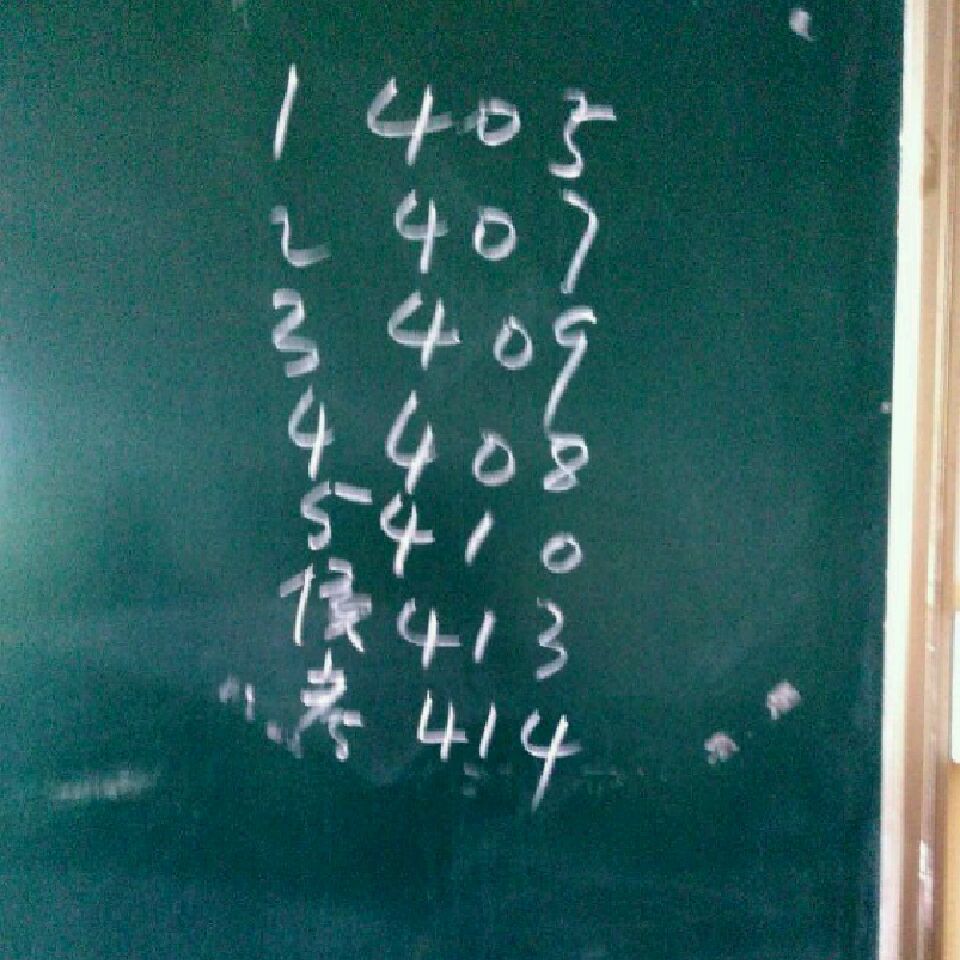 1 405
2 407
3 409
4 408
5 410
候 413
考 414